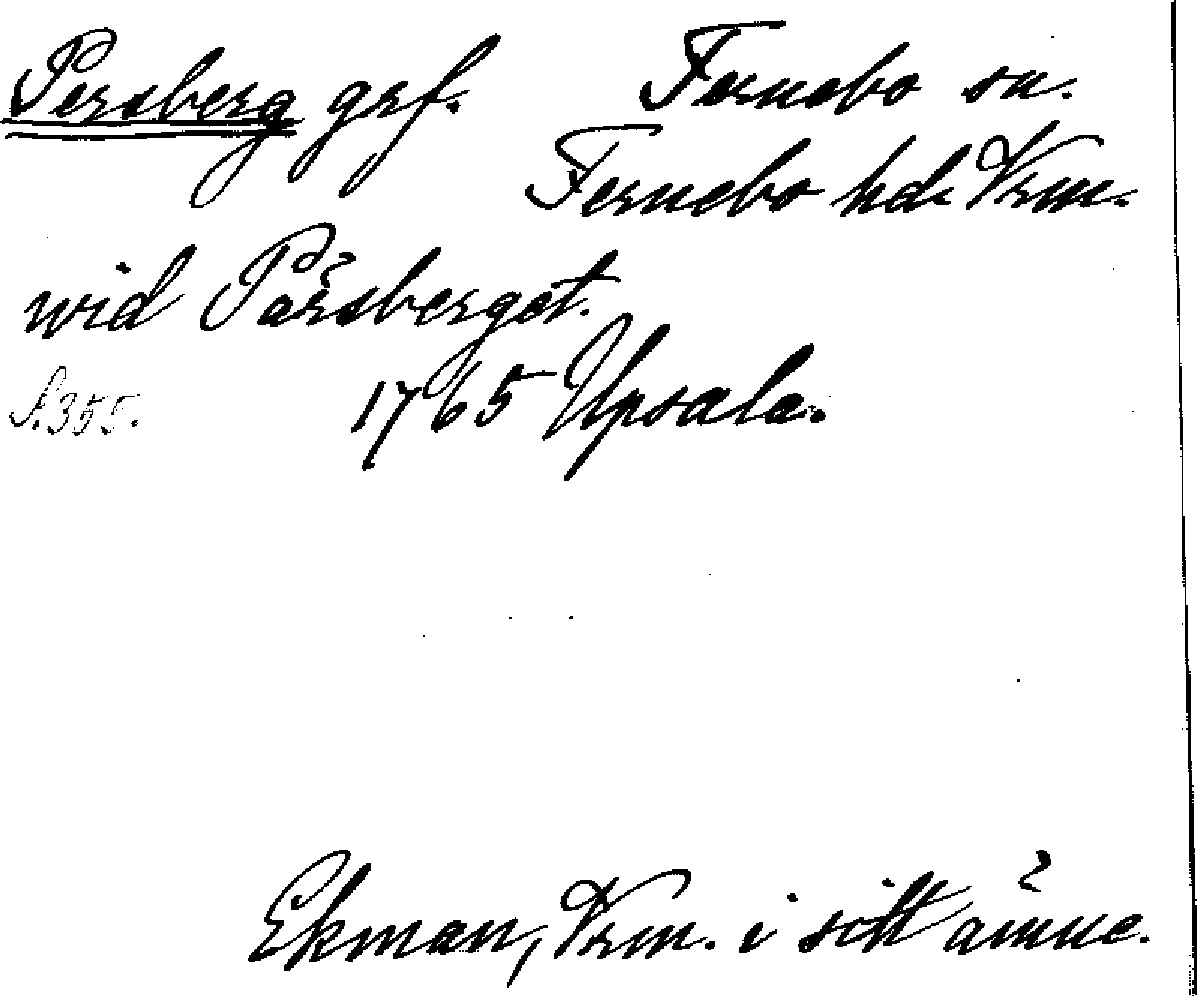 Persberg grf. Fernebo sn.
Fernebo hd. Vrm.
wid Pärsberget.
S. 355. 1765 Upsala.
Ekman, Vrm. i sitt ämne.